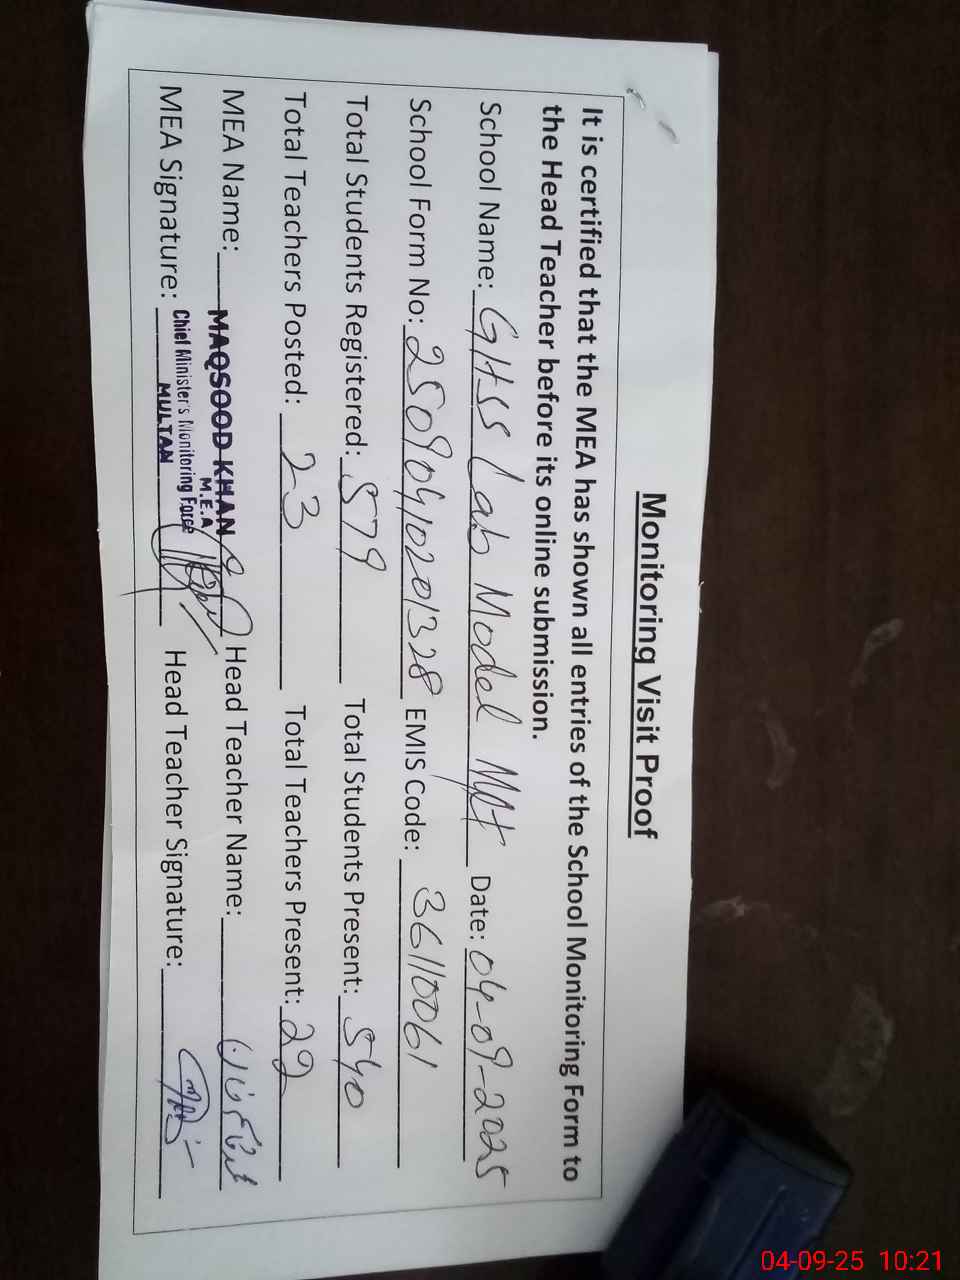 Monitoring Visit Proof
It is certified that the MEA has shown all entries of the School Monitoring Form to
the Head Teacher before its online submission.
School Name: GHSS Lab Model Date: 04-09-2025
School Form No: 25090410201328 EMIS Code: 36110061
Total Students Registered: 579 Total Students Present: 540
Total Teachers Posted: 23 Total Teachers Present: 22
MEA Name: MAQSOOD KHAN Head Teacher Name:
M.E.A
MEA Signature: Chief Minister's Monitoring Force Head Teacher Signature:
MULTAN
04-09-25 10:21